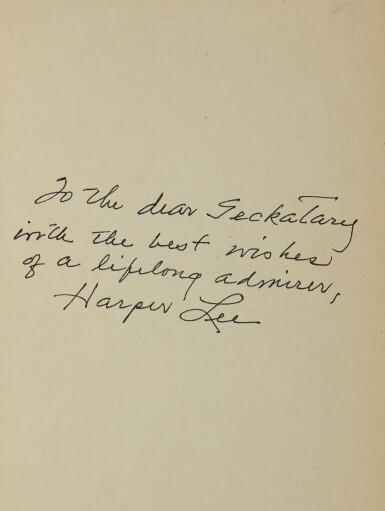 To the dear Seckatary
with the best wishes
of a lifelong admirer,
Harper Lee